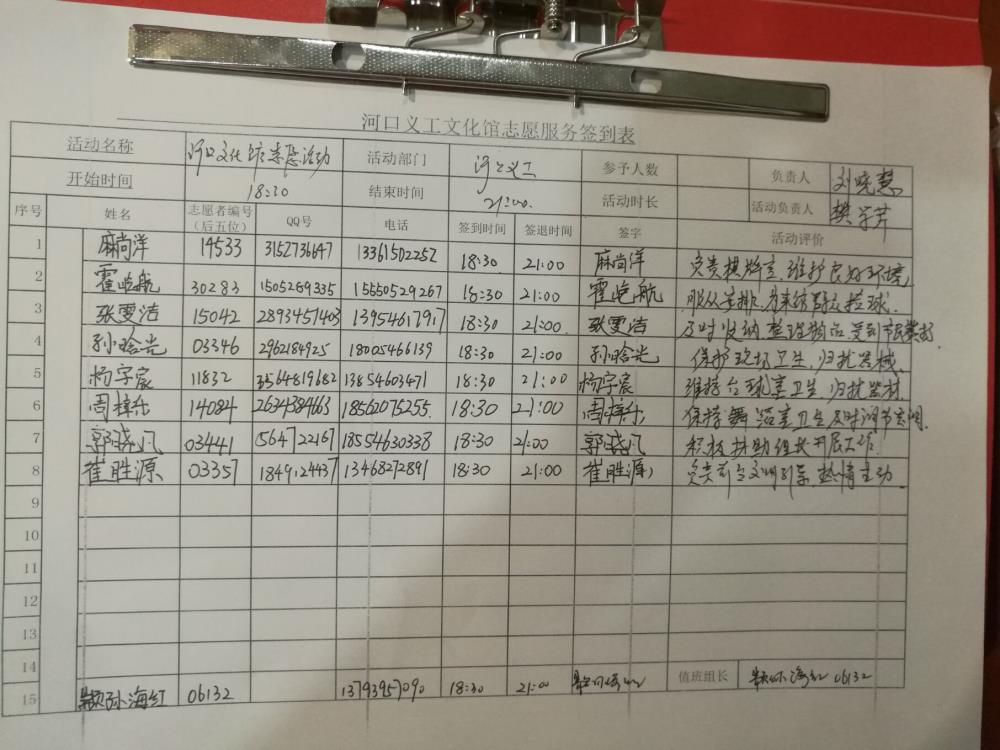 河口义工文化馆志愿服务签到表
活动名称 河口文化馆志愿活动 活动部门 河口义工 参予人数 负责人 刘晓慧
开始时间 18:30 结束时间 21:00. 活动时长 活动负责人 樊学芹
序号 姓名 志愿者编号（后五位） QQ号 电话 签到时间 签退时间 签字 活动评价
1 麻尚洋 14533 3152736647 13361502252 18:30 21:00 麻尚洋 负责棋牌室、维护良好环境,
2 霍屹航 30283 1505269335 15550529267 18:30 21:00 霍屹航 服从安排、为来馆群众捡球.
3 张雯洁 15042 2893457403 13954617917 18:30 21:00. 张雯洁 及时收纳、整理物品、受到
4 孙晗光 03346 2962184925 18005466139 18:30 21:00. 孙晗光 保护现场卫生，归扰器械、
5 杨字宸 11832 3564819682 13854603471 18:30 21:00 杨字宸 维持台球室卫生，归扰器材
6 周梓乐 14084 2634384663 18562075255. 18:30 21:00 周梓乐 保持舞蹈室卫生及时调节空调
7 03441 1564722167 18554630338 18:30 21:00 积极协助组长开展工作
8 崔胜源 03357 1849124437 13468272891 18:30 21:00 崔胜源 负责前台文明引导,热情主动.
9
10
11
12
13
14
15 孙海红 06132 13793957090 18:30 21:00 值班组长 孙海红 06132